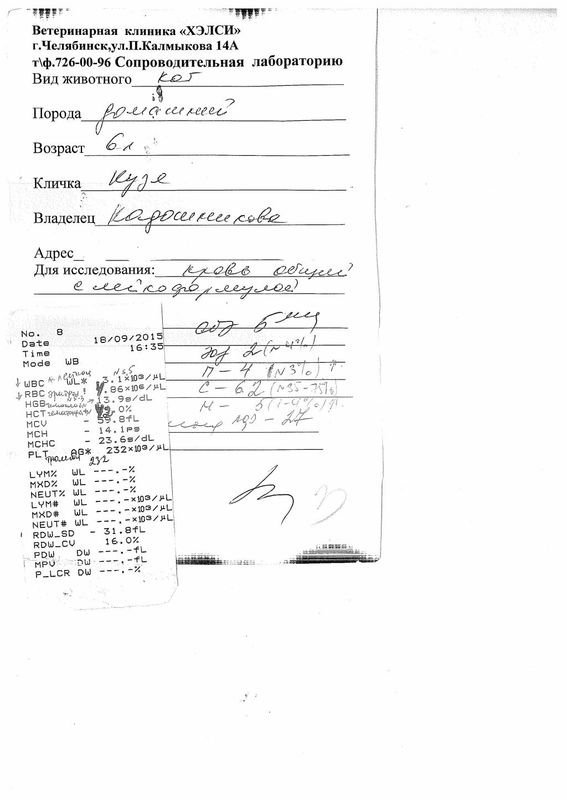 Ветеринарная клиника «ХЭЛСИ»
г.Челябинск,ул.П.Калмыкова 14А
т\ф.726-00-96 Сопроводительная лабораторию
Вид животного кот
Порода домашний
Возраст 6 л
Кличка Кузя
Владелец Кадошникова
Адрес
Для исследования: кровь общий
с лейкоформулой
No. 8
Date 18/09/2015
Time 16:35
Mode WB
WBC WL* 3.1×10³/µL
RBC .86×10⁶/µL
HGB 13.9g/dL
HCT .0%
MCV - 59.8fL
MCH - 14.1pg
MCHC - 23.6g/dL
PLT AG* 232×10³/µL
232
LYM% WL ---.-%
MXD% WL ---.-%
NEUT% WL ---.-%
LYM# WL ---.-×10³/µL
MXD# WL ---.-×10³/µL
NEUT# WL ---.-×10³/µL
RDW_SD - 31.8fL
RDW_CV 16.0%
PDW DW ---.-fL
MPV DW ---.-fL
P_LCR DW ---.-%
эоз 2 (N 4%)
П - 4 (N 3%)
С - 62 (N35-75%)
М - 5 (1-4%)
27